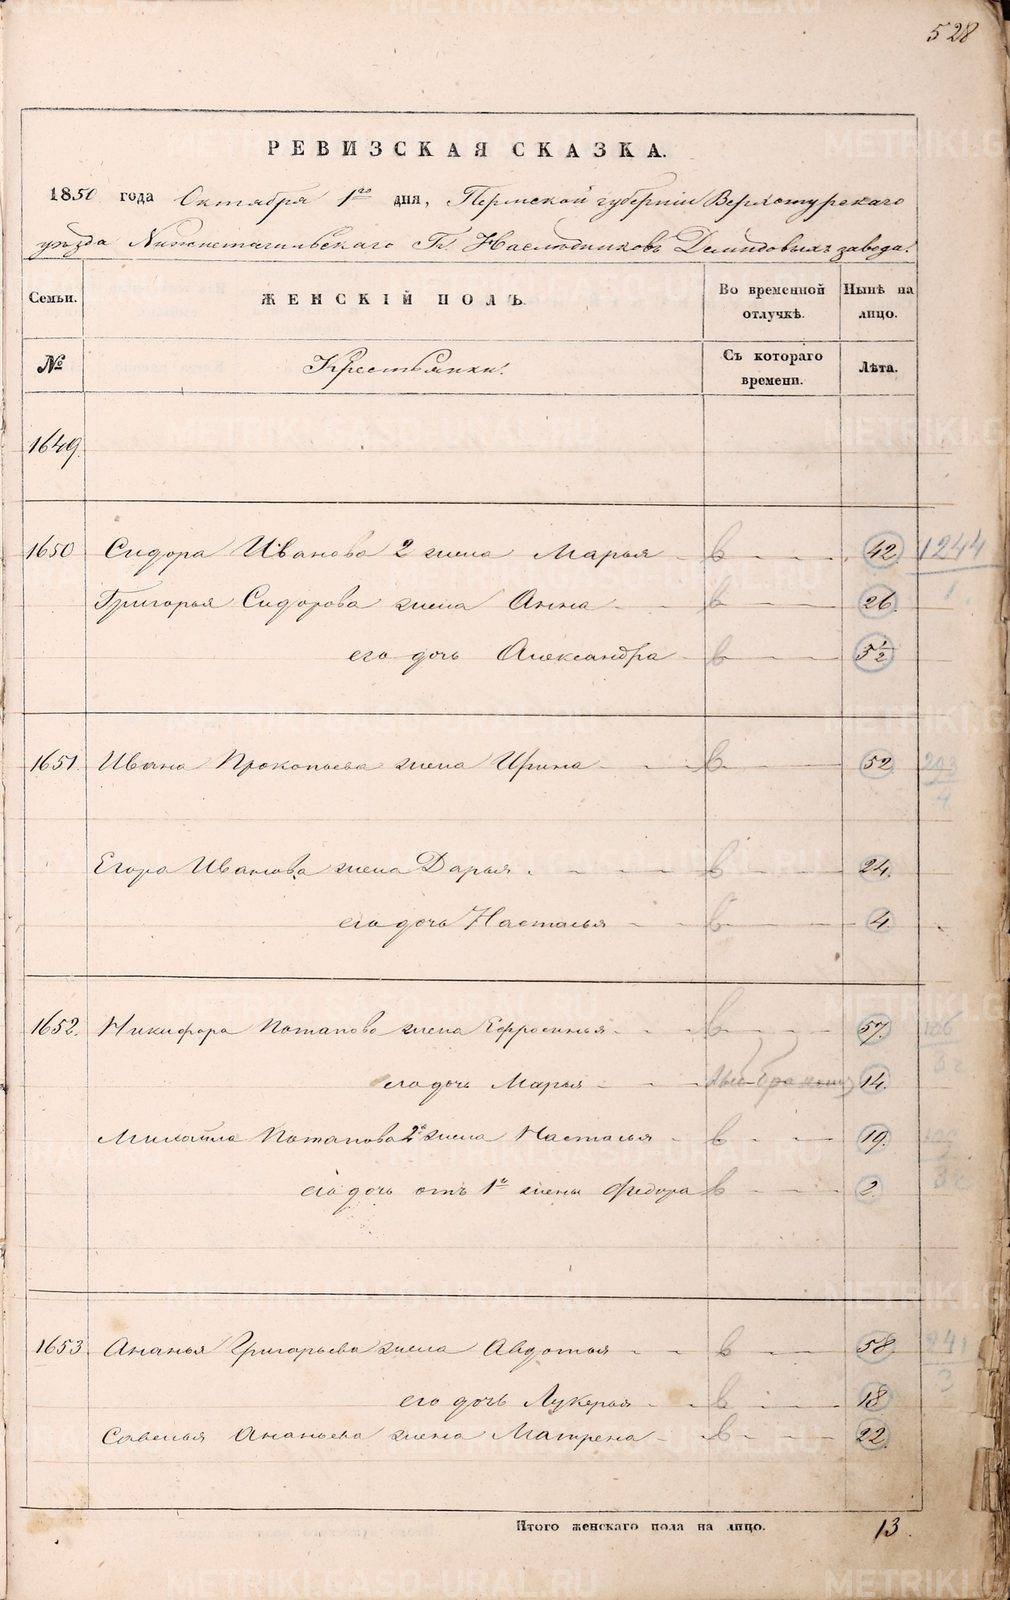 528
РЕВИЗСКАЯ СКАЗКА.
1850 года Октября 1го дня, Пермской губернiи Верхотурскаго
уѣзда Нижнетагильскаго Гг. Наслѣдниковъ Демидовыхъ завода.
Семьи. ЖЕНСКIЙ ПОЛЪ. Во временной отлучкѣ. Нынѣ на лицо.
№ Крестьянки. Съ котораго времени. Лѣта.
1649.
1650 Сидора Иванова 2 жена Марья - в - - - 42. 1244
Григорья Сидорова жена Анна - - в - - - 26. 1
его дочь Александра - в - - - 5½
1651. Ивана Прокопьева жена Ирина - - - в - - - 52. 203
4
Егора Иванова жена Дарья - - - - в - - - 24.
его дочь Настасья - - - в - - - 4.
1652. Никифора Потапова жена Ефросинья - - - в - - - 57. 106
его дочь Марья - - - 14.
Михайла Потапова 2я жена Настасья - в - - - 19.
его дочь отъ 1й жены Федора в - - - 2.
1653. Ананья Григорьева жена Авдотья - - в - - - 58. 241
3
его дочь Лукерья - - в - - - 18
Савелья Ананьева жена Матрена - - в - - - 22.
Итого женскаго пола на лицо. 13.
METRIKI.GASO-URAL.RU